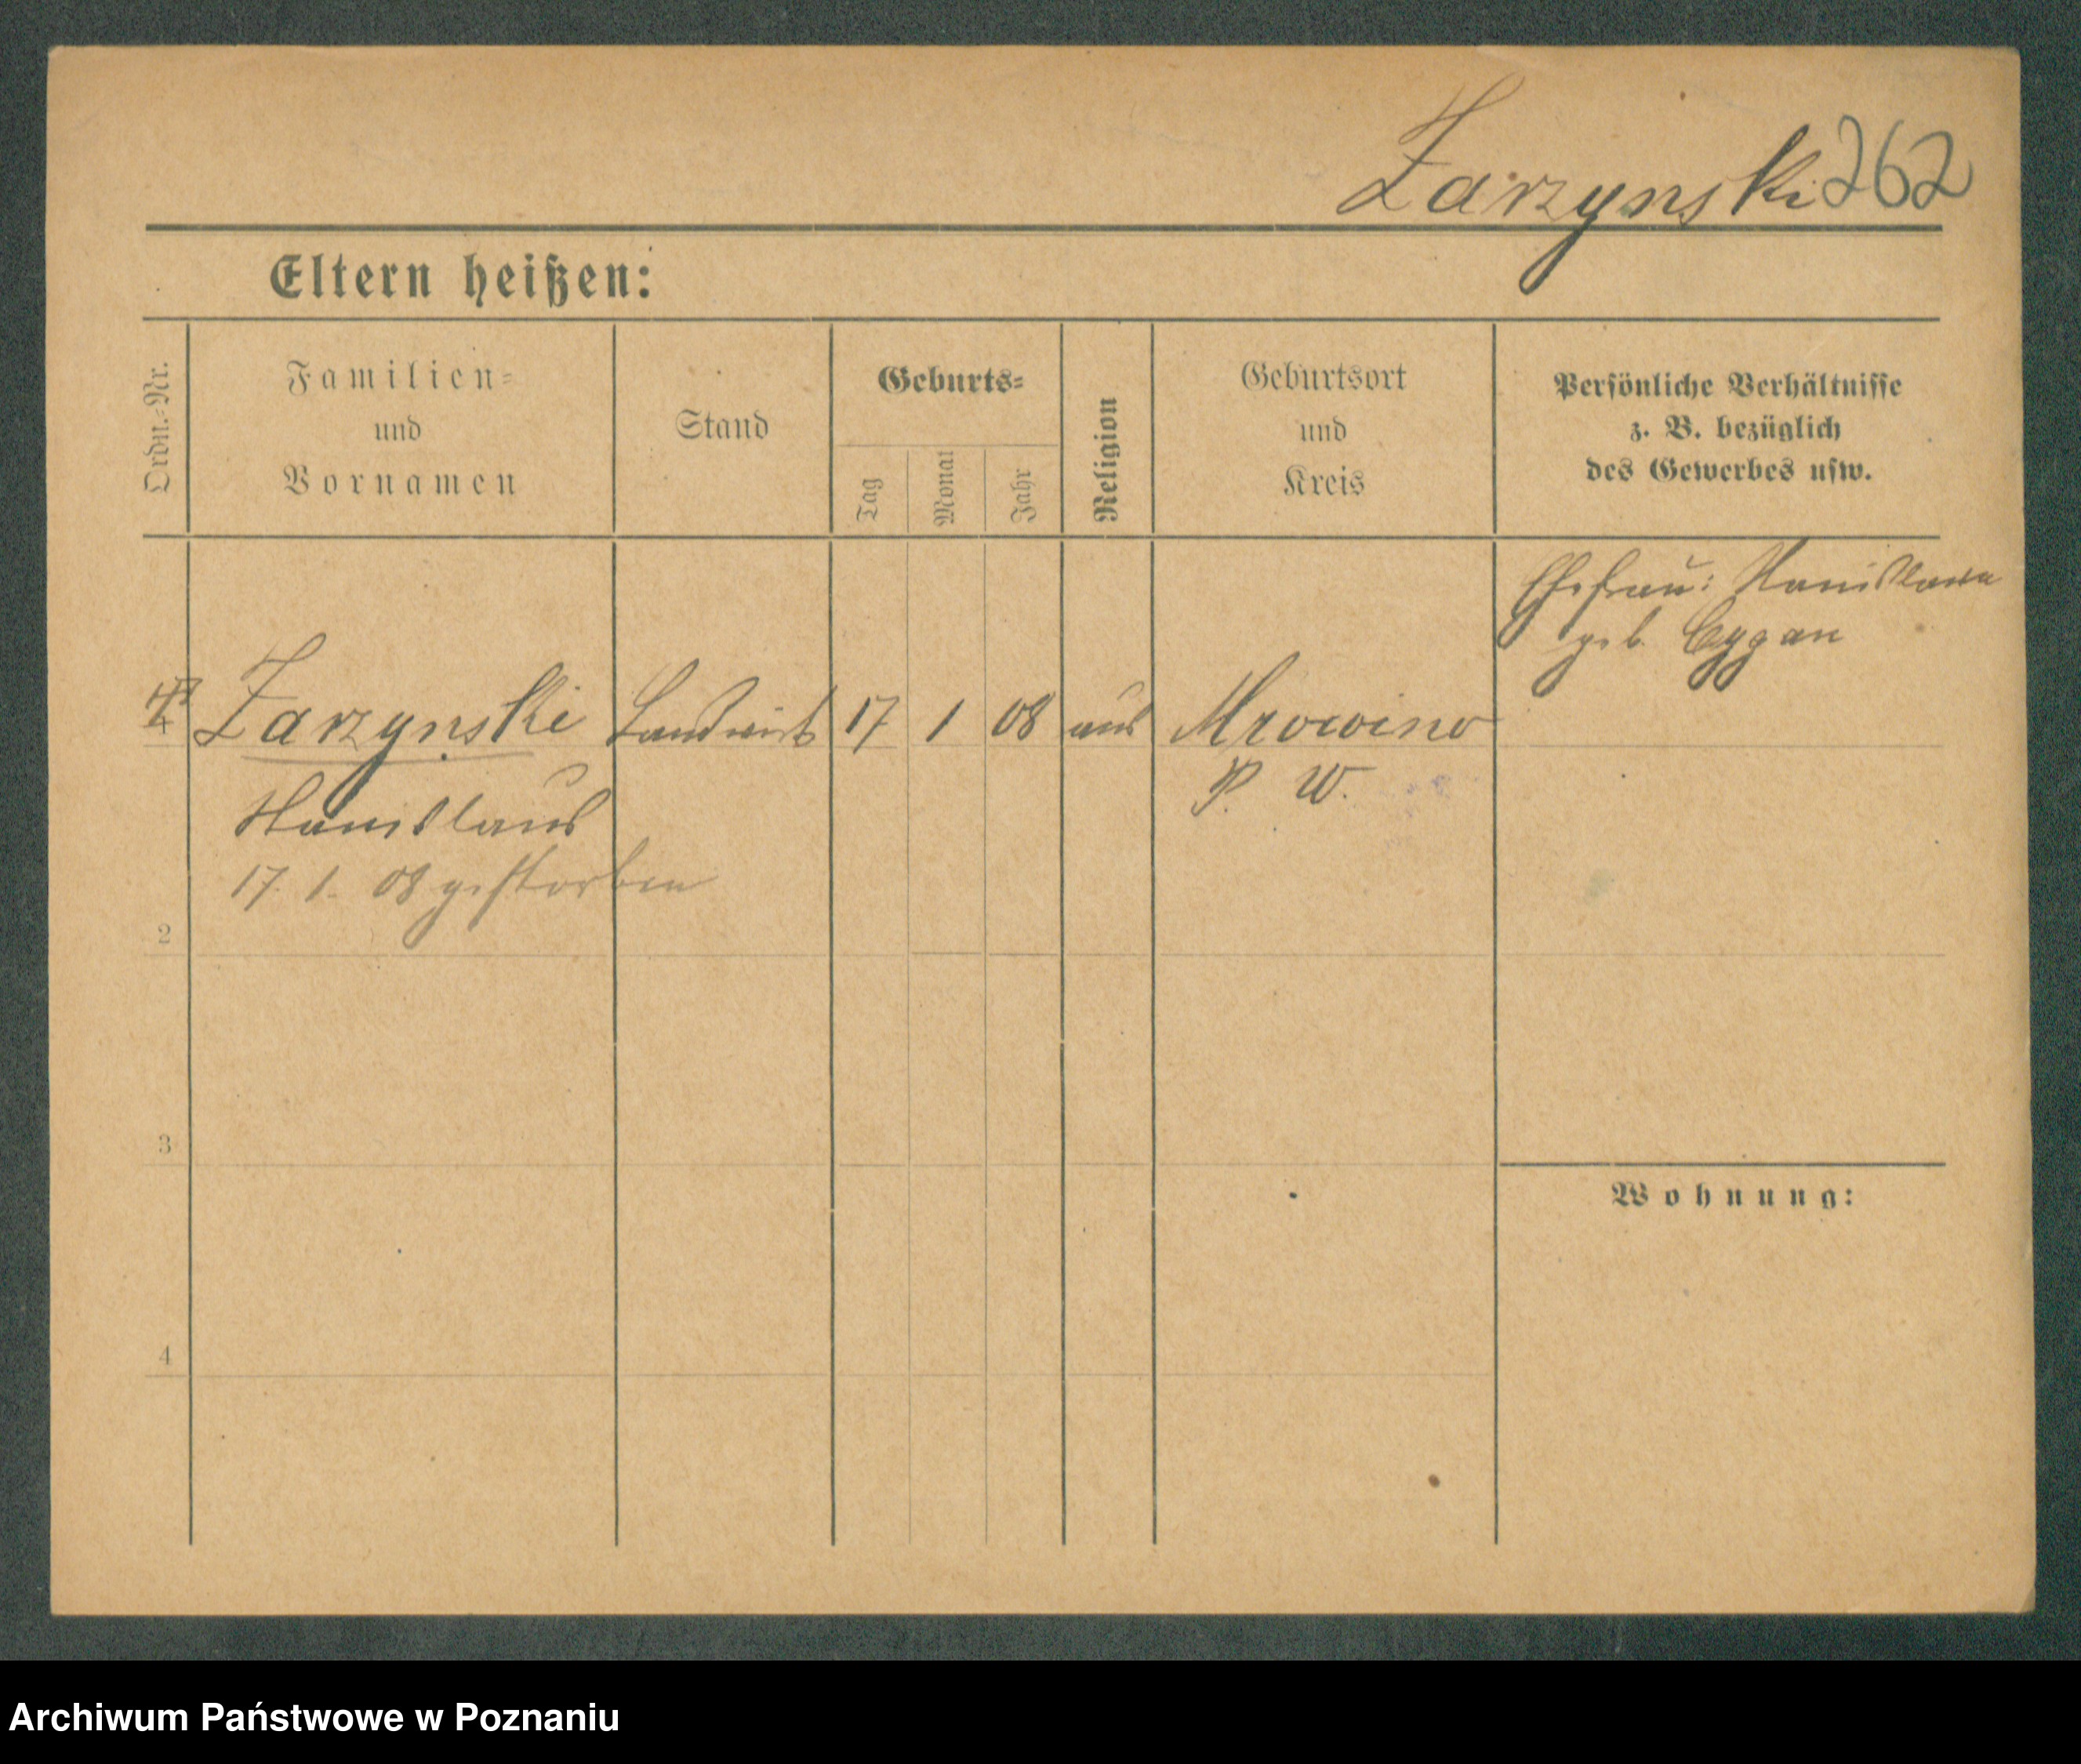 Zarzynski 262
Eltern heißen:
Ordn.-Nr.
Familien-
und
Vornamen
Stand
Geburts-
Tag
Monat
Jahr
Religion
Geburtsort
und
Kreis
Persönliche Verhältnisse
z. B. bezüglich
des Gewerbes usw.
Ehefrau: Stanislawa
geb. Cygan
Zarzynski Landwirt 17 1 08 aus Mrowino
P. W.
Stanislaus
17. 1. 08 gestorben
2
3
Wohnung:
4
Archiwum Państwowe w Poznaniu